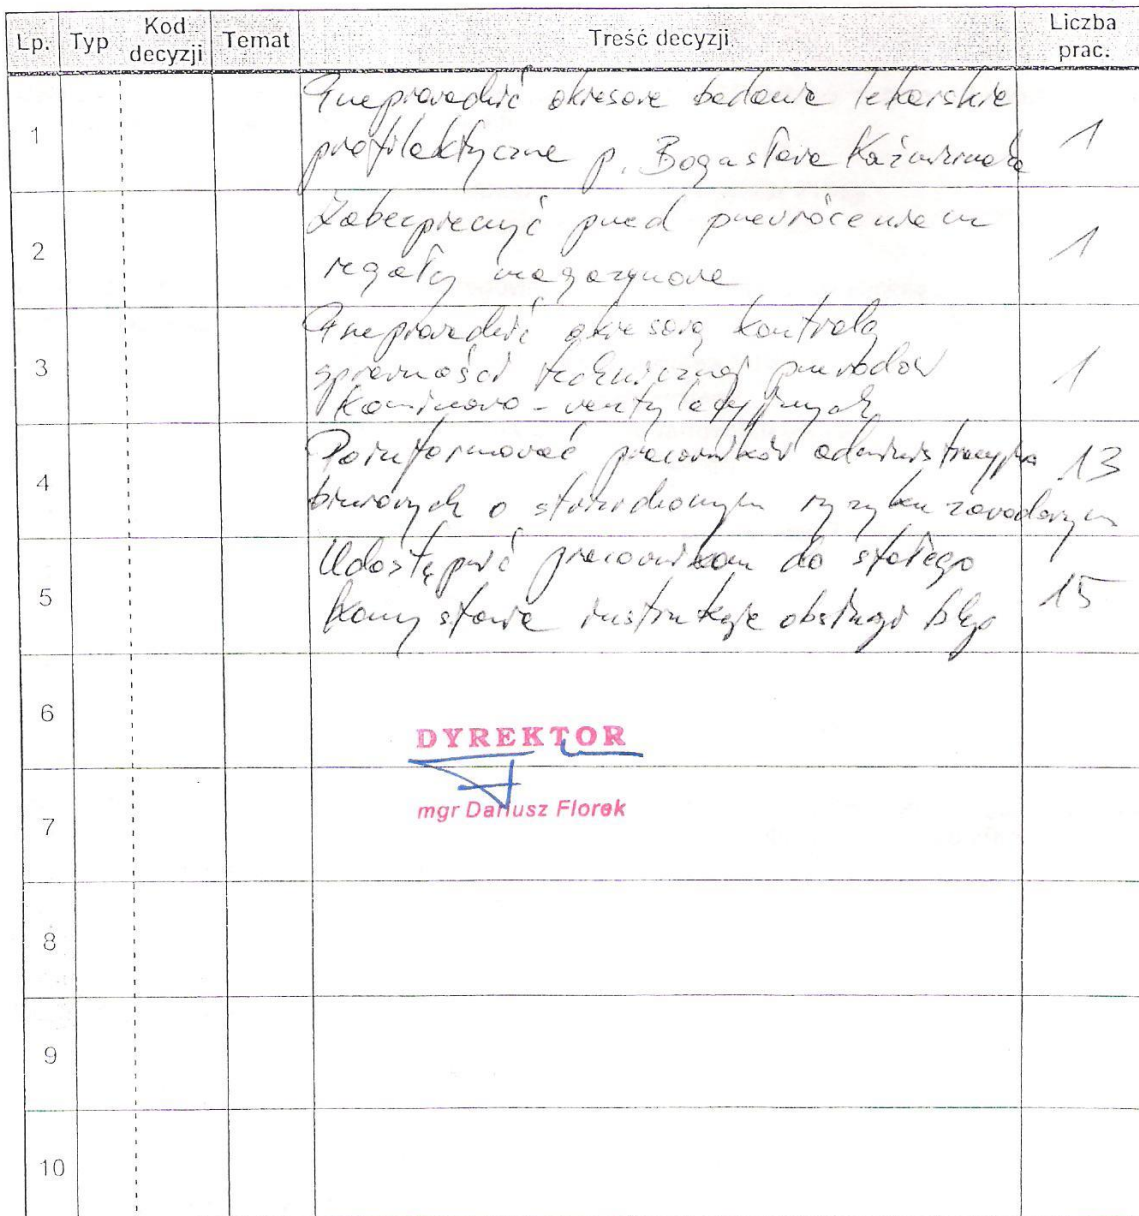 Lp. Typ Kod decyzji Temat Treść decyzji Liczba prac.
1 Przeprowadzić okresowe badania lekarskie
profilaktyczne p. Bogusława Kaźmierczaka 1
2 Zabezpieczyć przed przewróceniem
regały magazynowe 1
3 Przeprowadzić okresową kontrolę
sprawności technicznej przewodów
kominowo-wentylacyjnych 1
4 Poinformować pracowników administracyjno
biurowych o ryzyku zawodowym 13
5 Udostępnić pracownikom do stałego
korzystania instrukcje obsługi bhp 15
6
DYREKTOR
mgr Dariusz Florek
7
8
9
10